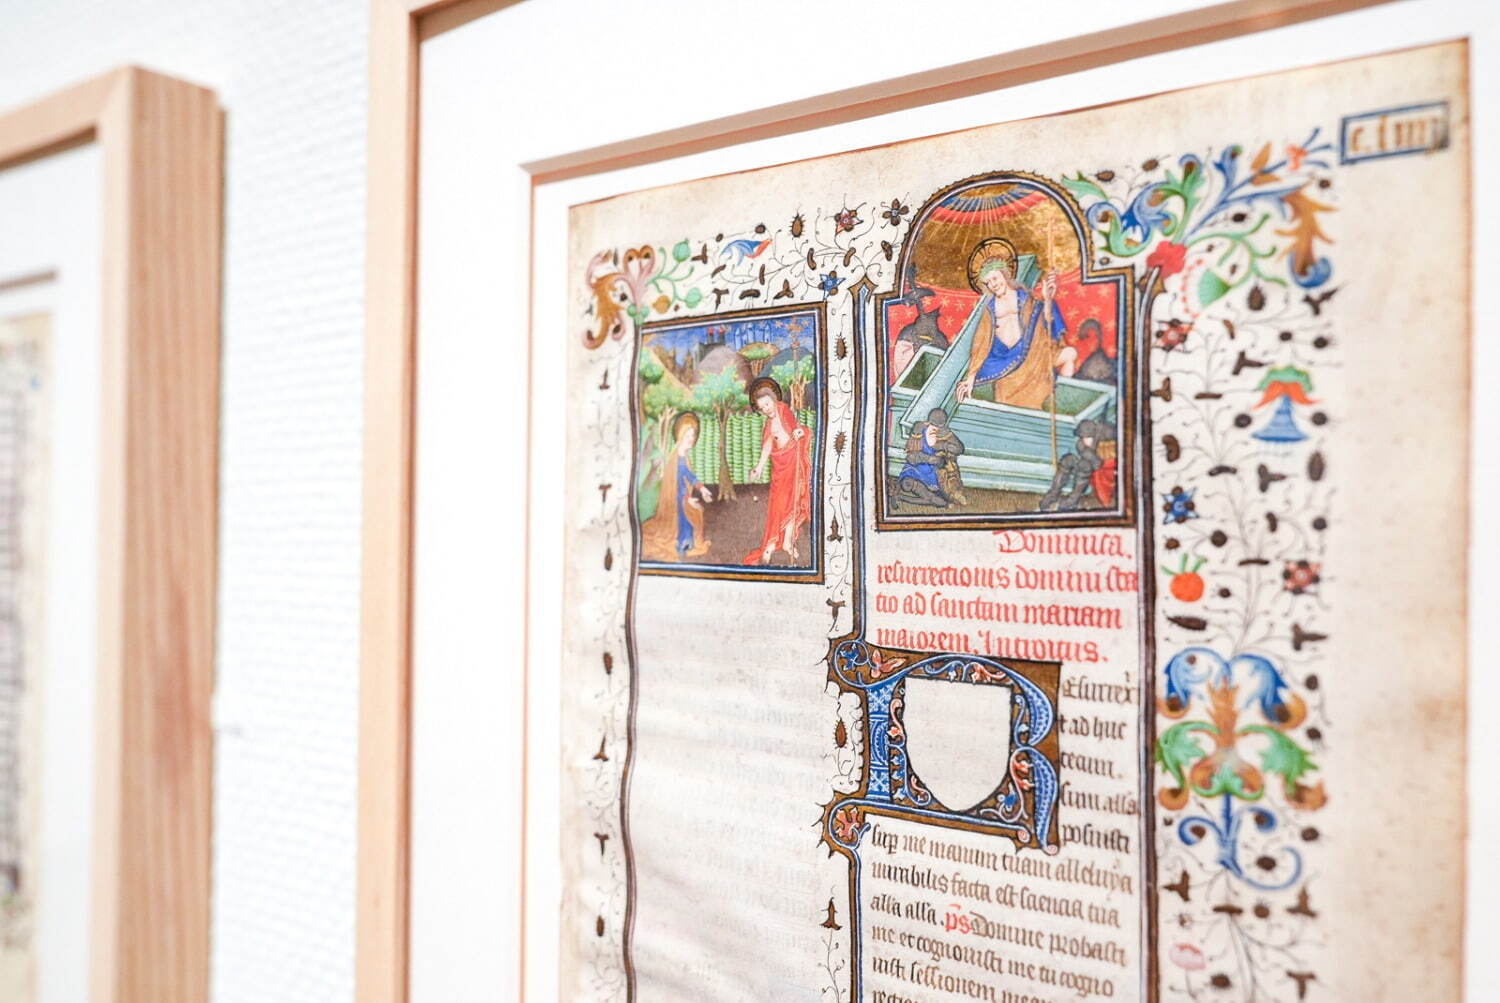 c.liiij
Dominica.
resurrectionis domini sta
tio ad sanctam mariam
maiorem. Introitus.
Resurrexi
et ad huc
tecum
sum alla
posuisti
sup me manum tuam alleluya
mirabilis facta est sciencia tua
alla alla. ps Domine probasti
me et cognouisti me tu cogno
uisti sessionem meam